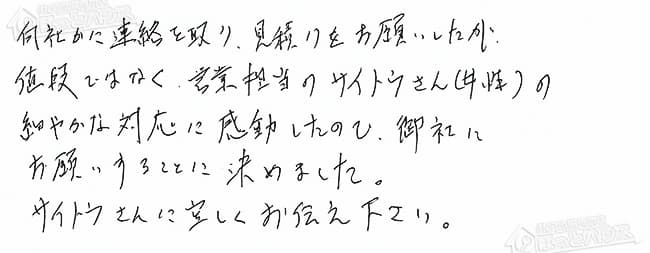 何社かに連絡を取り、見積りをお願いしたが、
値段ではなく、営業担当のサイトウさん(女性)の
細やかな対応に感動したので、御社に
お願いすることに決めました。
サイトウさんに宜しくお伝え下さい。